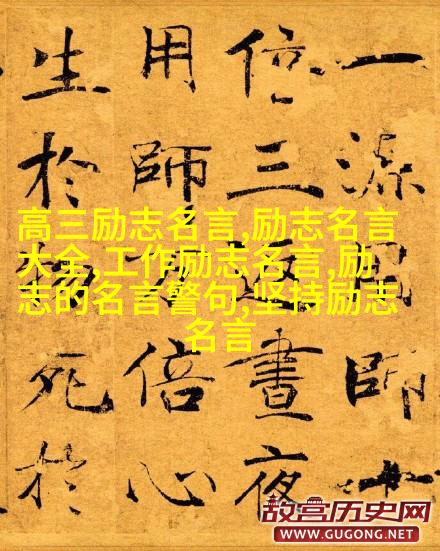 一源用師十
倍三返晝夜
用師倍心
生於物死於
高三励志名言,励志名言
大全,工作励志名言,励
志的名言警句,坚持励志
名言
故宫历史网
WWW.GUGONG.NET